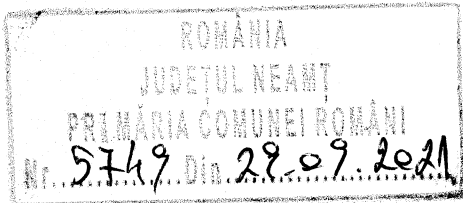 ROMÂNIA
JUDEȚUL NEAMȚ
PRIMĂRIA COMUNEI ROMÂNI
Nr. 5749 Din 29.09.2021